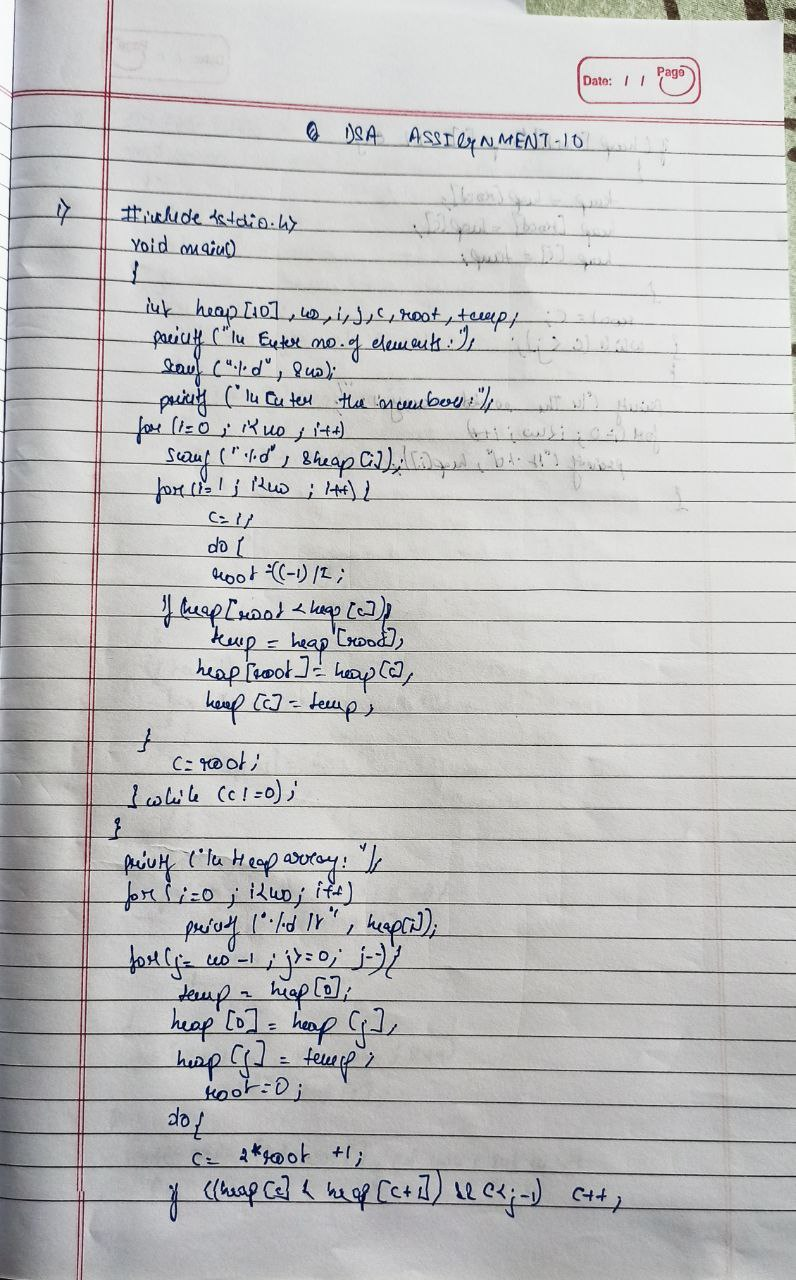 Date: / / Page
DSA ASSIGNMENT-10
1) #include <stdio.h>
void main()
{
int heap[10], no, i, j, c, root, temp;
printf ("\n Enter no. of elements:");
scanf ("%d", &no);
printf ("\n Enter the numbers:");
for (i=0 ; i<no ; i++)
scanf ("%d", &heap[i]);
for (i=1 ; i<no ; i++) {
c=i;
do {
root =((-1)/2;
if (heap[root < heap [c]) {
temp = heap [root];
heap [root] = heap [c];
heap [c] = temp;
}
c=root;
} while (c!=0);
}
printf ("\n Heap array: ");
for (i=0 ; i<no; i++)
printf ("%d \t", heap[i]);
for (j= no-1 ; j>=0; j--) {
temp = heap [0];
heap [0] = heap [j];
heap [j] = temp;
root=0;
do {
c= 2*root +1;
if ((heap [c] < heap [c+1]) && c<j-1) c++;